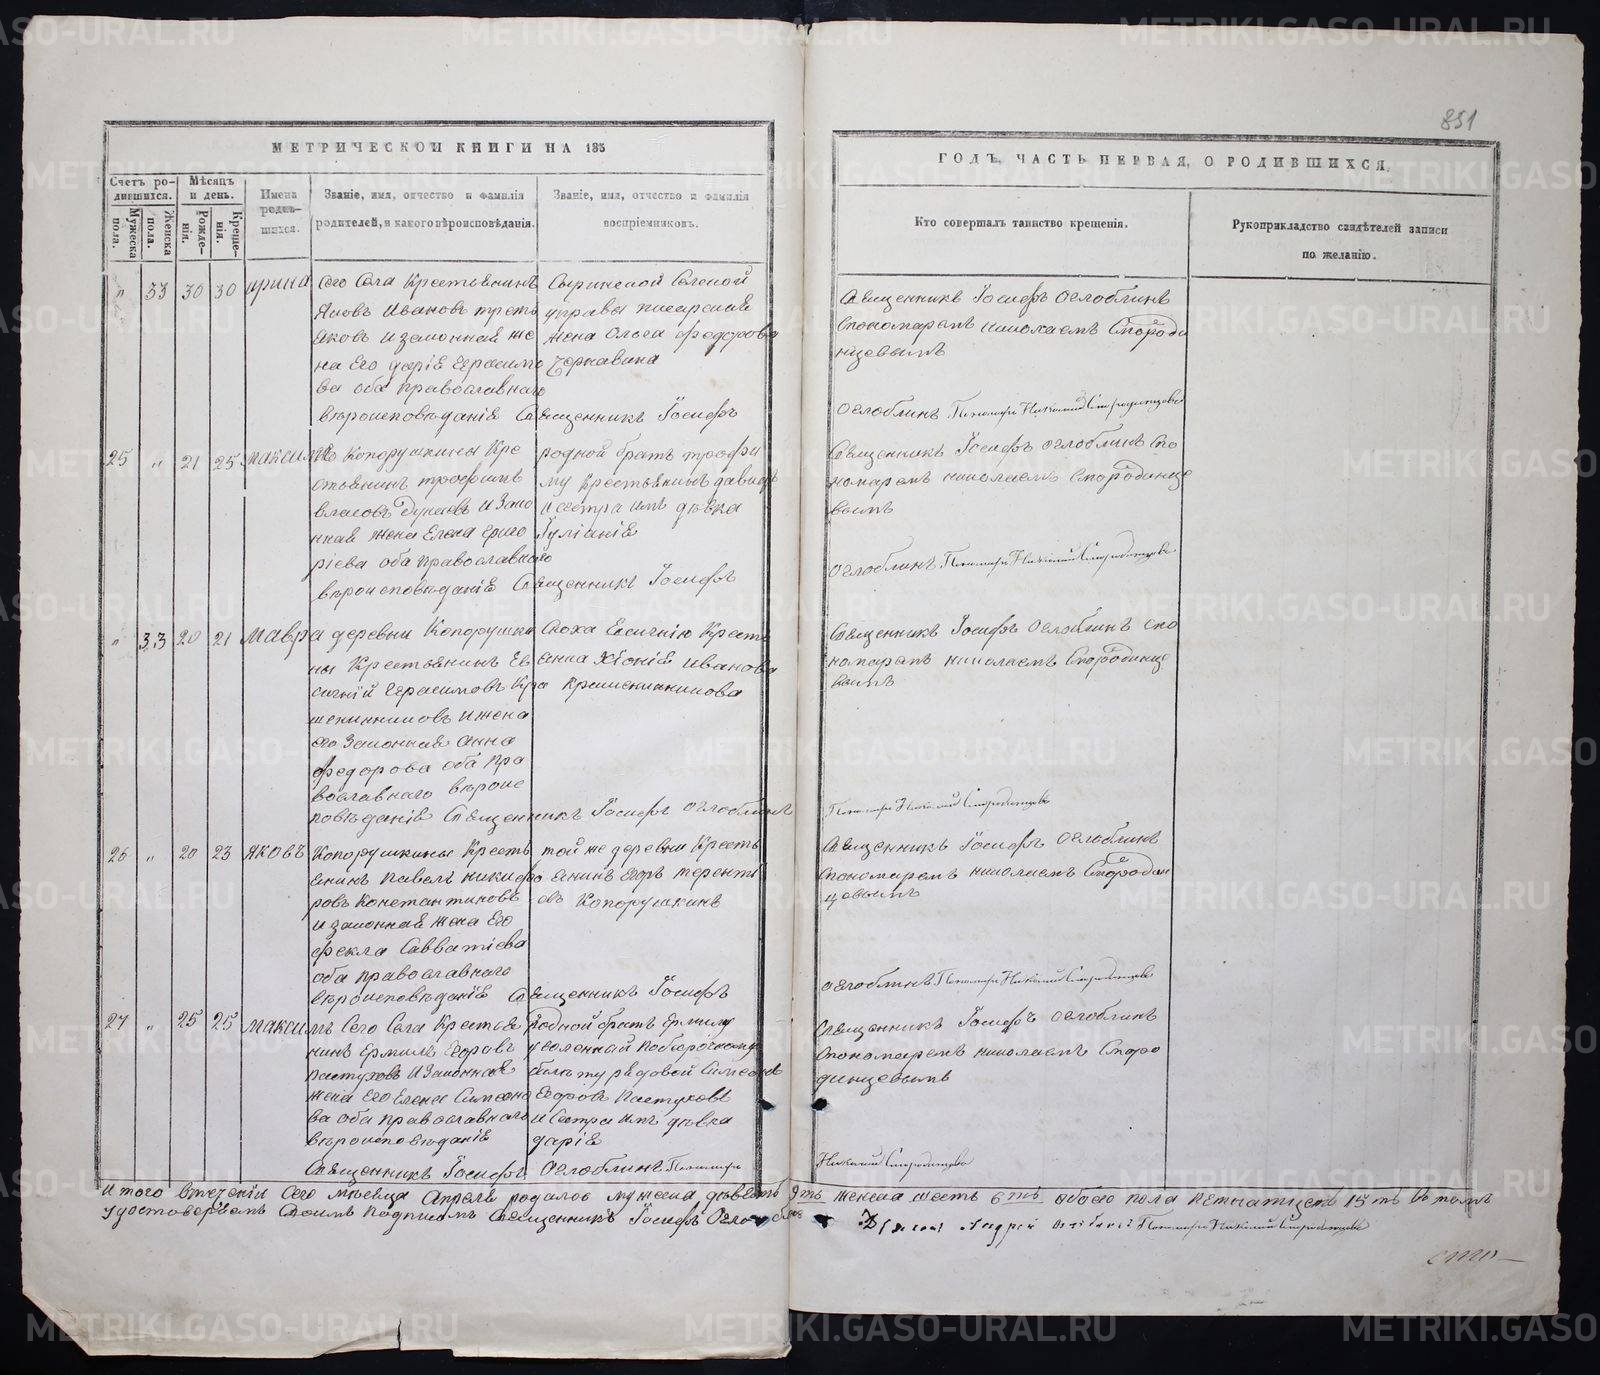 851
МЕТРИЧЕСКОИ КНИГИ НА 185
ГОДЪ, ЧАСТЬ ПЕРВАЯ, О РОДИВШИХСЯ.
Счетъ ро-
дившихся.
Мужеска
пола.
Женска
пола.
Мѣсяцъ
и день.
Рожде-
нія.
Креще-
нія.
Имена
родив-
шихся.
Званіе, имя, отчество и фамилія
родителей, и какого вѣроисповѣданія.
Званіе, имя, отчество и фамилія
воспріемниковъ.
Кто совершалъ таинство крещенія.
Рукоприкладство свидѣтелей записи
по желанію.
" 33 30 30 ирина
Сего Села Крестьянинъ
Яковъ Ивановъ
и законная же
на Его даріѣ Герасимо
ва оба православнаго
вѣроисповѣданіѣ Священникъ Іосифъ
Сыринской Сельской
управы писарская
жена Ольга федорова
Чернавина
Священникъ Іосифъ Оглоблинъ
Спономаремъ николаемъ Смороди
нцевымъ
Оглоблинъ Пономарь Николай Смородинцовъ
25 " 21 25 максимъ
Копорушкины Кре
стьянинъ трофимъ
власовъ и Зако
нная жена Елена Григо
ріева оба православнаго
вѣроисповѣданіѣ Священникъ Іосифъ
родной братъ трофи
му Крестьянинъ давидъ
и сестра имъ дѣвка
Іуліаніѣ
Священникъ Іосифъ оглоблинъ Спо
номаремъ николаемъ Смородинце
вымъ
оглоблинъ Пономарь Николай Смородинцовъ
" 33 20 21 мавра
деревни Копорушки
ны Крестьянинъ Ев
сигній Герасимовъ Кра
шенинниковъ и жена
его Законная анна
федорова оба пра
вославнаго вѣроис
повѣданіѣ Священникъ Іосифъ оглоблинъ
Сноха Евсигнію Кресть
янка Хіоніѣ иванова
Крашенинникова
Священникъ Іосифъ Оглоблинъ спо
номаремъ николаемъ Смородинце
вымъ
Пономарь Николай Смородинцовъ
26 " 20 23 яковъ
Копорушкины Кресть
янинъ павелъ никифо
ровъ Константиновъ
и законная жена Его
фекла Савватіева
оба православнаго
вѣроисповѣданіѣ Священникъ Іосифъ
той же деревни Кресть
янинъ Егоръ терентi
евъ Копорушкинъ
Священникъ Іосифъ Оглоблинъ
Спономаремъ николаемъ Смородин
цовымъ
оглоблинъ Пономарь Николай Смородинцовъ
27 " 25 25 максимъ
Сего Села Крестья
нинъ Ермилъ Егоровъ
пастуховъ и Законная
жена Его Елена Симеоно
ва оба православнаго
вѣроисповѣданіѣ
Священникъ Іосифъ Оглоблинъ Пономарь
Николай Смородинцовъ
Родной братъ Ермилу
уволенный
билету рядовой Симеонъ
Егоровъ Пастуховъ
и Сестра имъ дѣвка
даріѣ
Священникъ Іосифъ оглоблинъ
Спономаремъ николаемъ Сморо
динцевымъ
Итого втеченіи Сего мѣсяца Апрелѣ родилось мужска девять 9ть женска шесть 6ть обоего пола петнатцеть 15ть въ томъ
удостоверяемъ Своимъ подписомъ Священникъ Іосифъ Оглоблинъ Андрей Пономарь Николай Смородинцовъ